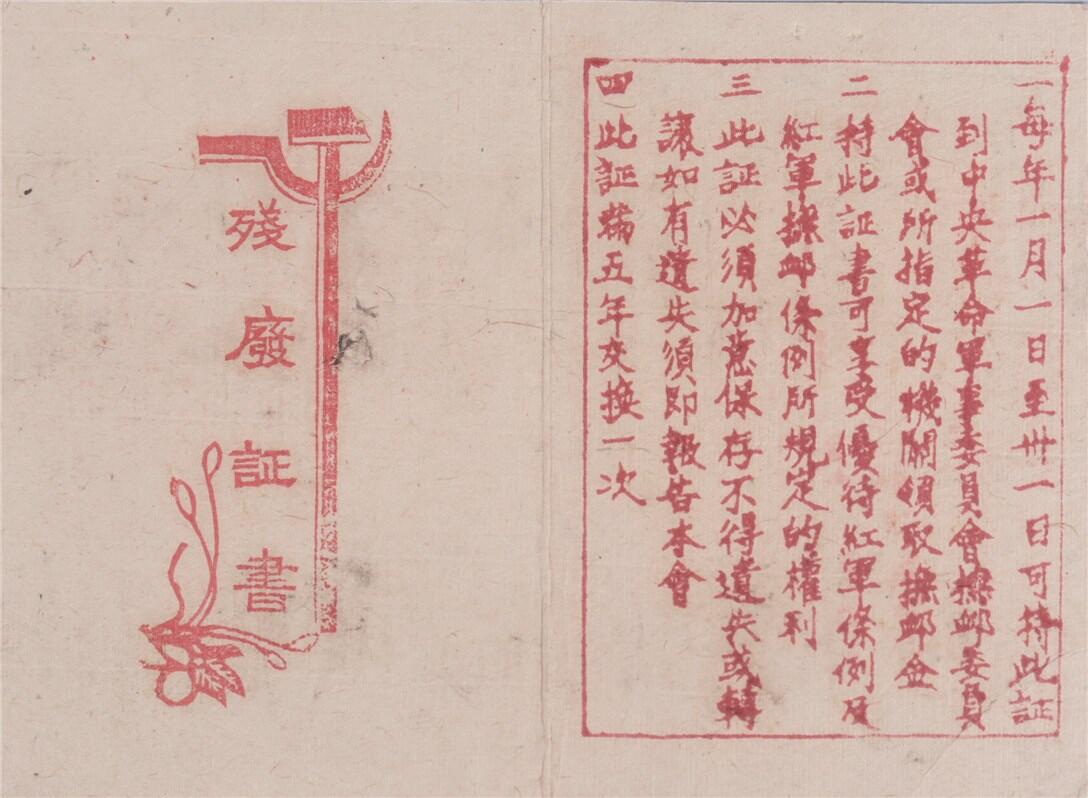 殘廢証書
一每年一月一日至卅一日可持此証
到中央革命軍事委員會撫卹委員
會或所指定的機關領取撫卹金
二持此証書可享受優待紅軍條例及
紅軍撫卹條例所規定的權利
三此証必須加意保存不得遺失或轉
讓如有遺失須即報告本會
四此証滿五年交換一次